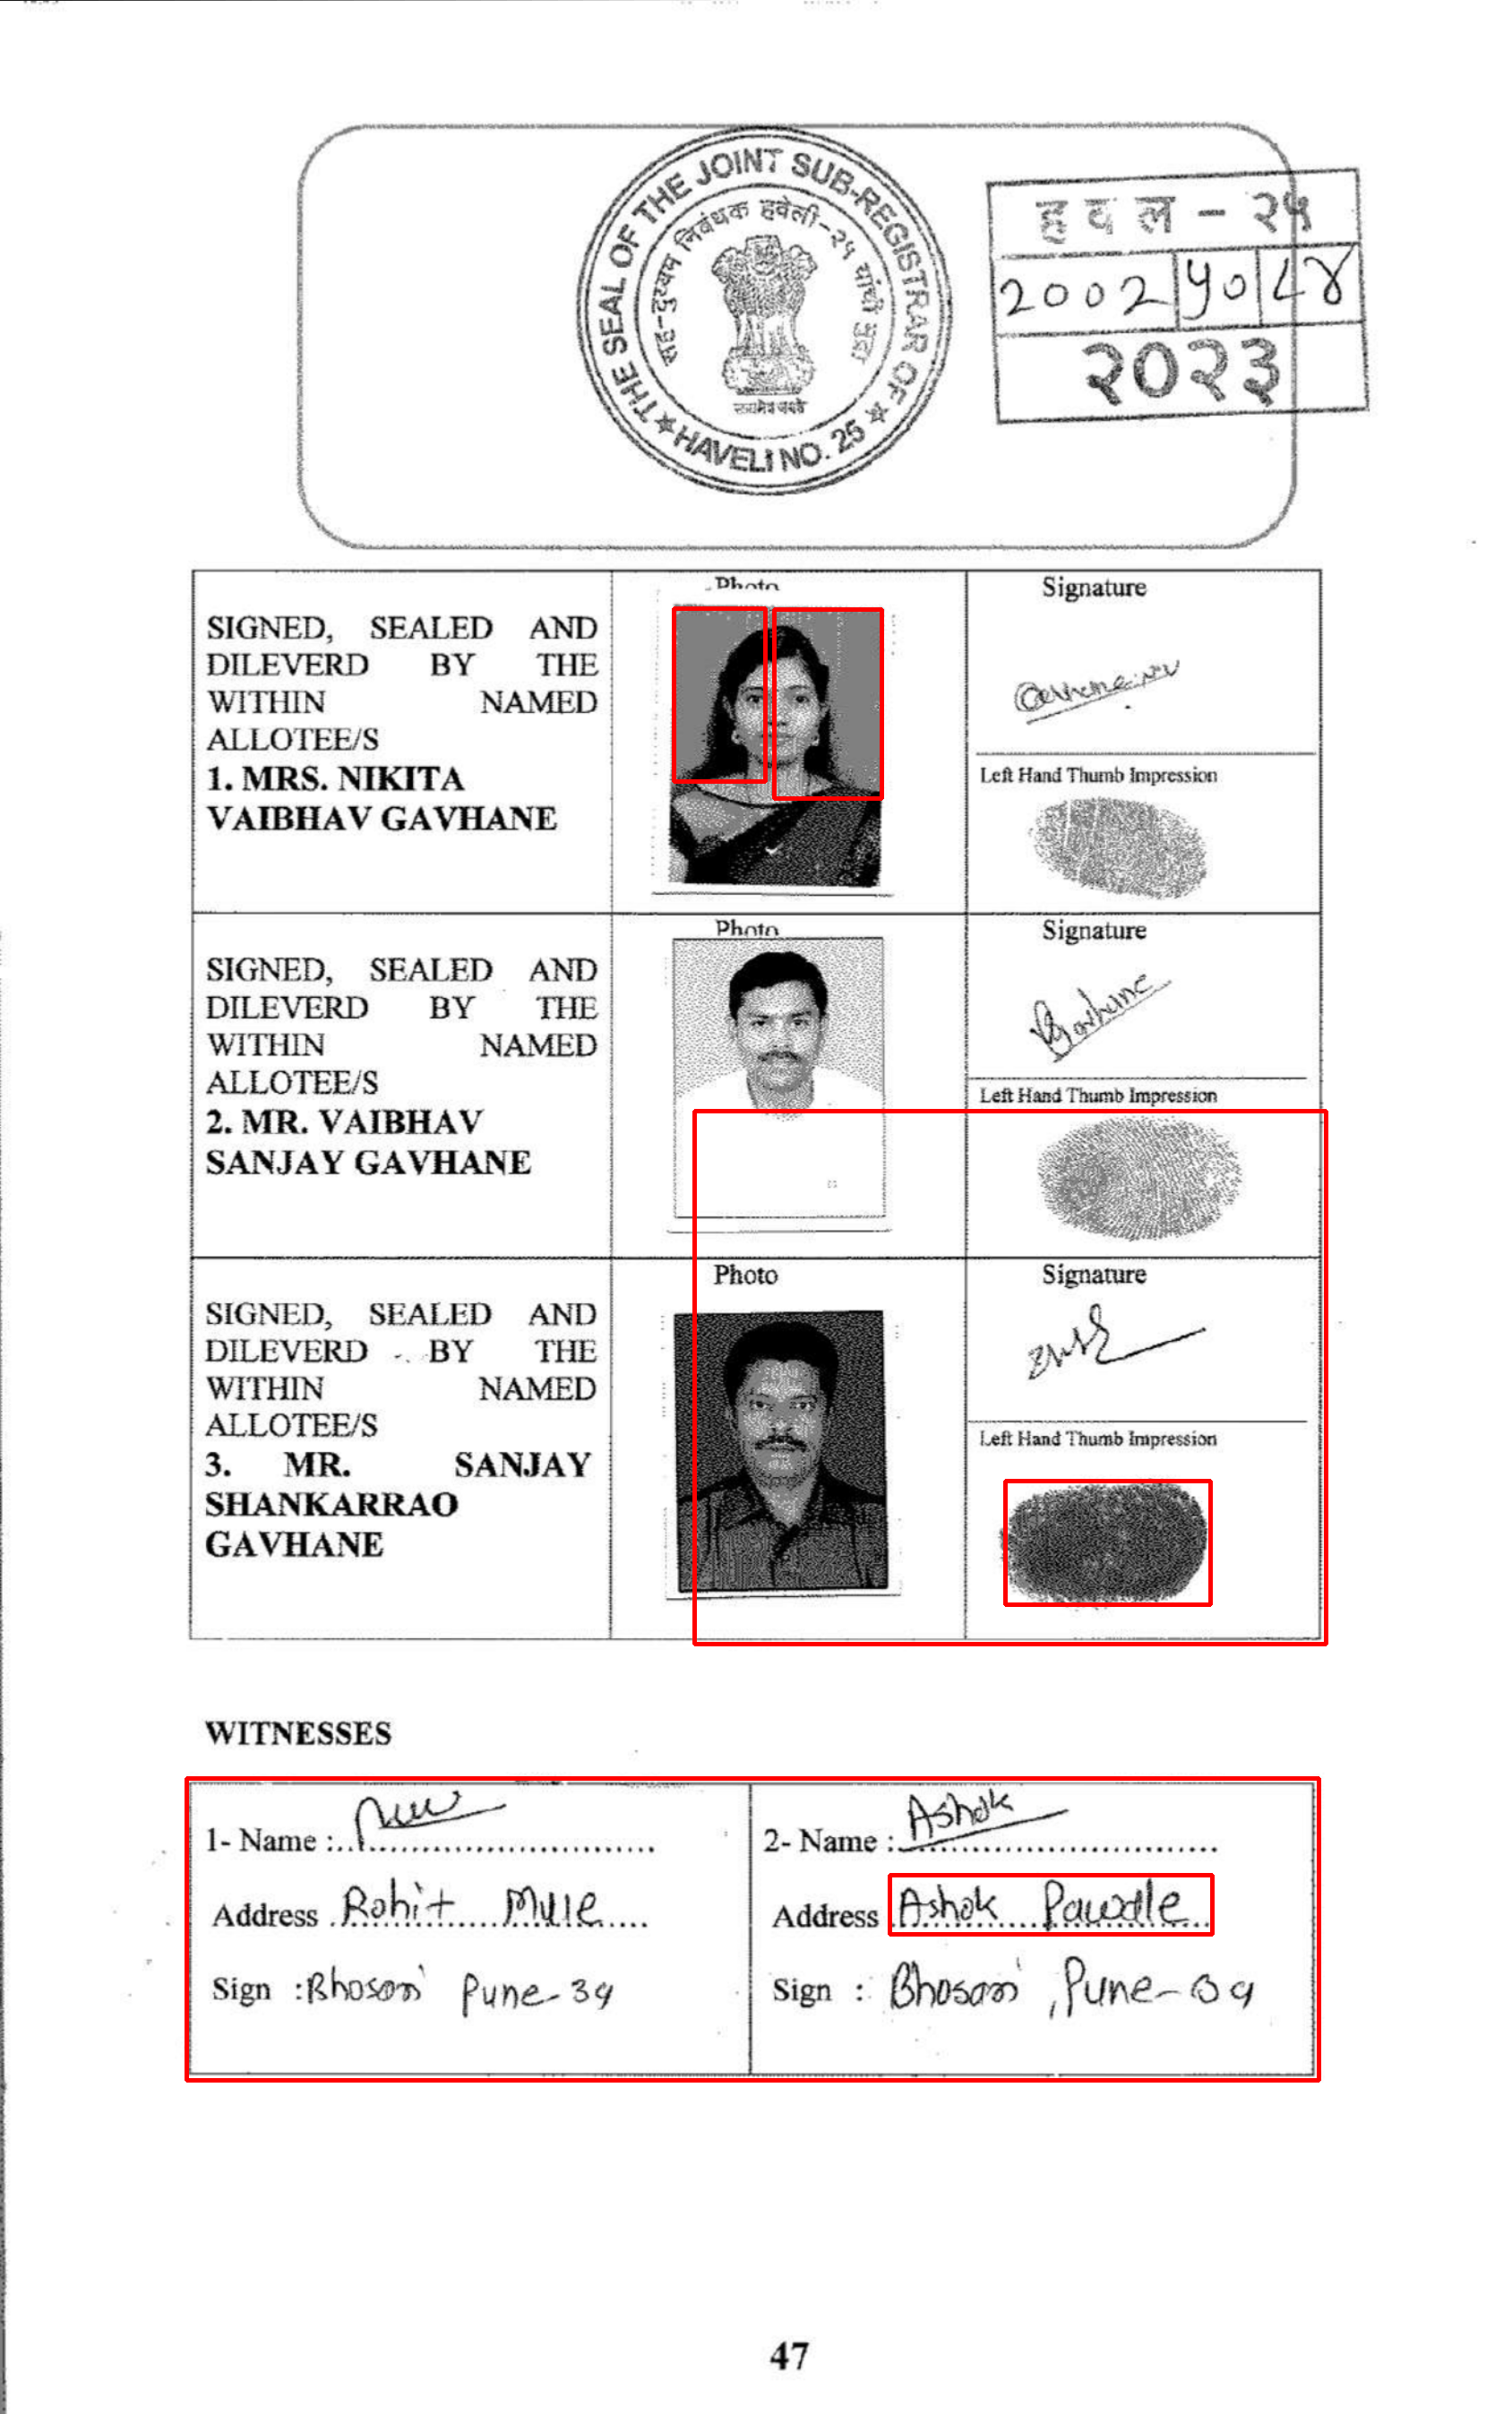 THE SEAL OF THE JOINT SUB-REGISTRAR OF
★ HAVELI NO. 25 ★
सह-दुय्यम निबंधक हवेली-२५ यांची मुद्रा
सत्यमेव जयते
हवल - २५
2002 | 40 | ८४
२०२३
Photo
Signature
SIGNED, SEALED AND
DILEVERD BY THE
WITHIN NAMED
ALLOTEE/S
1. MRS. NIKITA
VAIBHAV GAVHANE
Left Hand Thumb Impression
Photo
Signature
SIGNED, SEALED AND
DILEVERD BY THE
WITHIN NAMED
ALLOTEE/S
2. MR. VAIBHAV
SANJAY GAVHANE
Gavhane
Left Hand Thumb Impression
Photo
Signature
SIGNED, SEALED AND
DILEVERD BY THE
WITHIN NAMED
ALLOTEE/S
3. MR. SANJAY
SHANKARRAO
GAVHANE
Left Hand Thumb Impression
WITNESSES
1- Name :
Address Rohit Mule
Sign : Bhosari Pune-39
2- Name : Ashok
Address Ashok Pawdle
Sign : Bhosari, Pune-39
47